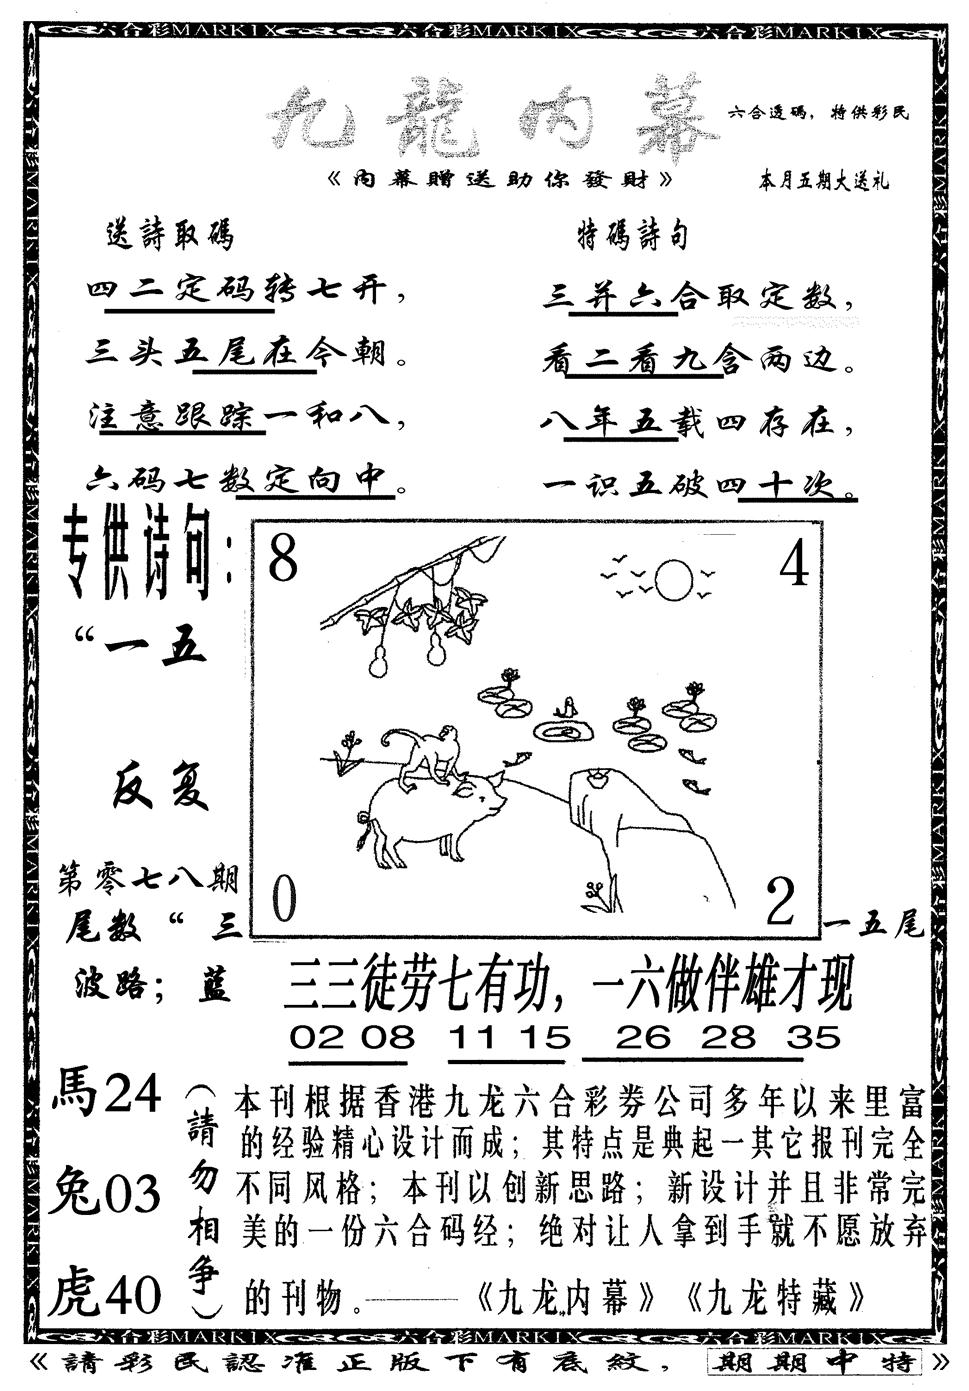 六合彩MARKIX 六合彩MARKIX 六合彩MARKIX
九龍内幕
六合透碼，特供彩民
《内幕贈送助你發財》
本月五期大送礼
送詩取碼
四二定码转七开，
三头五尾在今朝。
注意跟踪一和八，
六码七数定向中。
特碼詩句
三并六合取定数，
看二看九含两边。
八年五载四存在，
一识五破四十次。
专供诗句：
“一五
反复
第零七八期
尾数“三
波路；蓝
8
4
0
2
一五尾
三三徒劳七有功，一六做伴雄才现
02 08 11 15 26 28 35
馬24
兔03
虎40
（請勿相争）
本刊根据香港九龙六合彩券公司多年以来里富
的经验精心设计而成；其特点是典起一其它报刊完全
不同风格；本刊以创新思路；新设计并且非常完
美的一份六合码经；绝对让人拿到手就不愿放弃
的刊物。———《九龙内幕》《九龙特藏》
六合彩MARKIX 六合彩MARKIX 六合彩MARKIX
《請彩民認准正版下有底紋，期期中特》